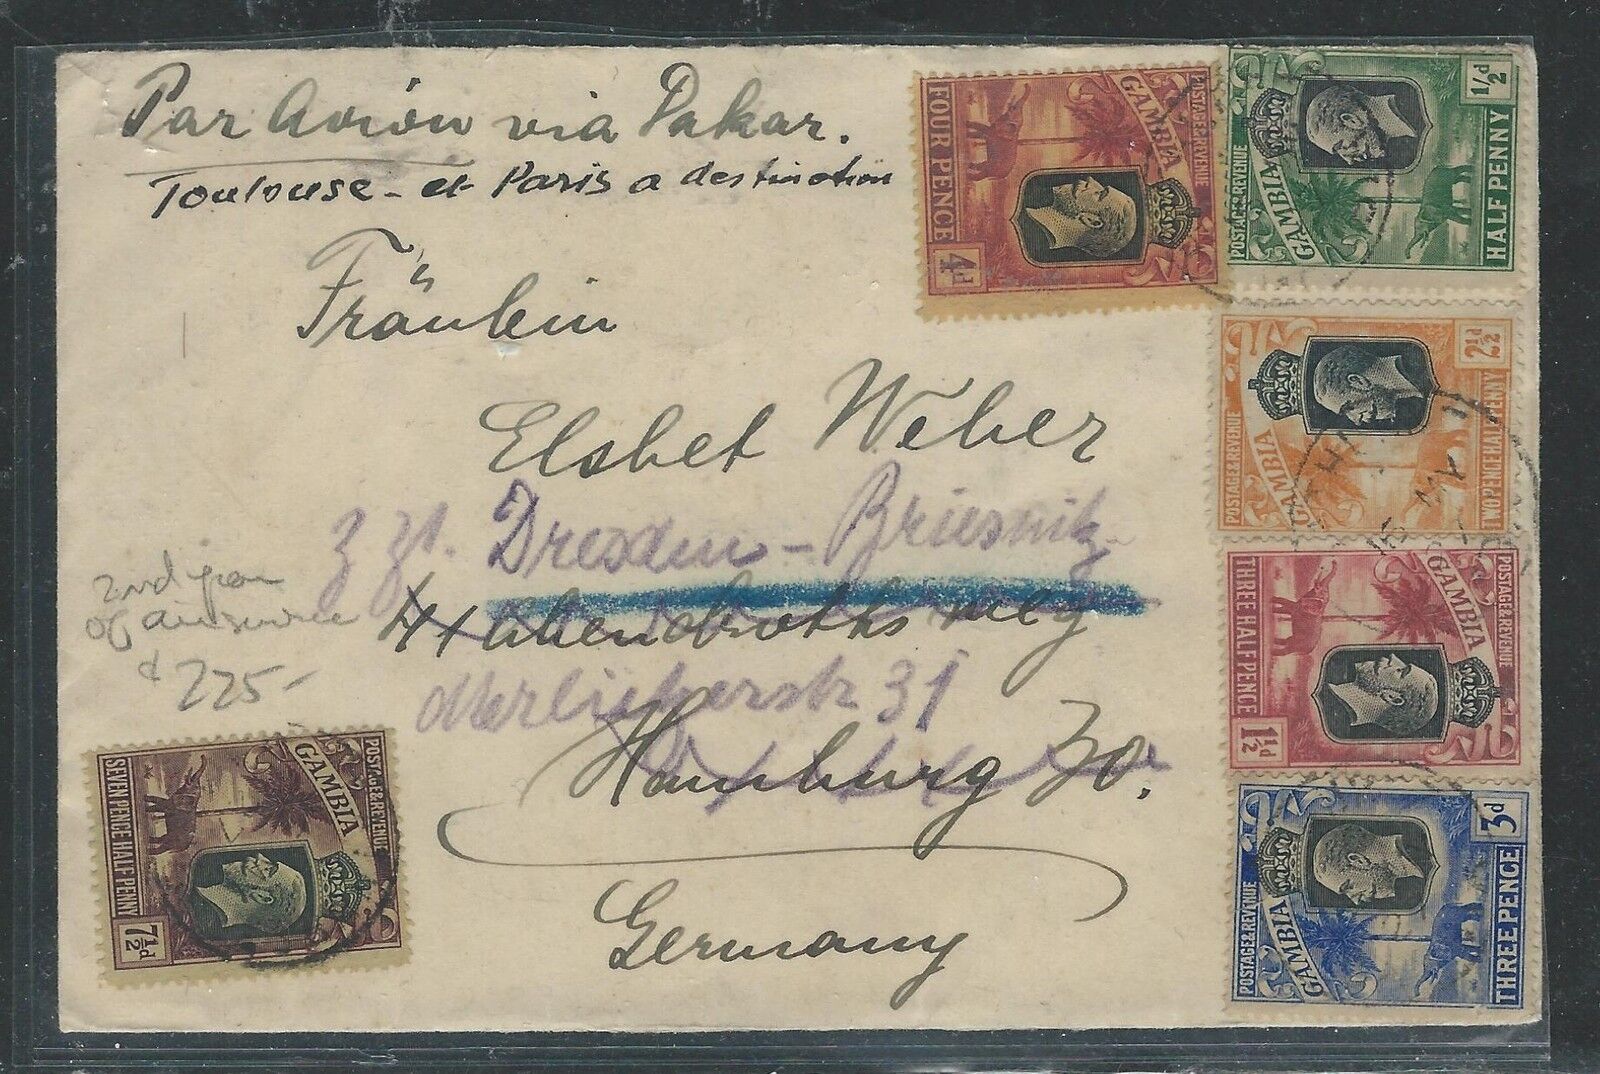 Par Avion via Dakar.
Toulouse - et Paris a destination
Fräulein
Elsbet Weber
z. Zt. Dresden - Briesnitz
Hamburg 30.
Germany
2nd year
of air service
225-
POSTAGE & REVENUE
GAMBIA
FOUR PENCE
4d
POSTAGE & REVENUE
GAMBIA
HALF PENNY
1/2d
POSTAGE & REVENUE
GAMBIA
TWO PENCE HALF PENNY
2 1/2d
POSTAGE & REVENUE
GAMBIA
THREE HALF PENCE
1 1/2d
POSTAGE & REVENUE
GAMBIA
THREE PENCE
3d
POSTAGE & REVENUE
GAMBIA
SEVEN PENCE HALF PENNY
7 1/2d